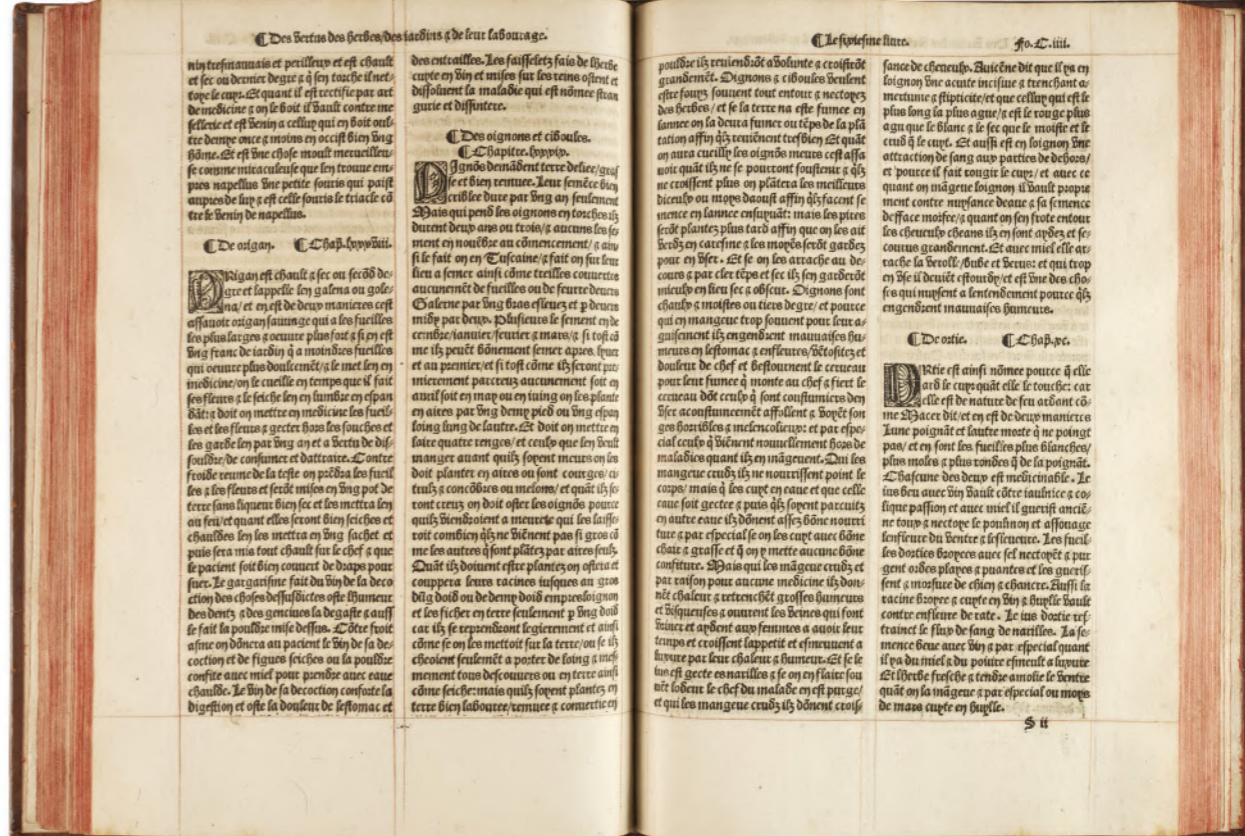 ¶ Des vertus des herbes/des iardins ⁊ de leur labourage.
nin tresmauuais et perilleux et est chault
et sec ou dernier degre ⁊ q̃ sen torche il net-
toye le cuyr. Et quant il est rectifie par art
de medicine ⁊ on le boit il vault contre me
sellerie et est venin a celluy qui en boit oul-
tre demye once ⁊ moins en occist bien vng
hõme. Et est vne chose moult merueilleu-
se comme miraculeuse que len trouue em-
pres napellus vne petite souris qui paist
aupres de luy ⁊ est celle souris le triacle cõ
tre le venin de napellus.
¶ De origan. ¶ Chap̃. lxxxviii.
ORigan est chault ⁊ sec ou secõd de-
gre et lappelle len galena ou gole-
na/ et en est de deux manieres cest
assauoir origan sauuage qui a les fueilles
les plus larges ⁊ oeuure plus fort ⁊ si en est
vng franc de iardin q̃ a moindres fueilles
qui oeuure plus doulcemẽt/⁊ le met len en
medicine/on le cueille en temps que il fait
ses fleurs ⁊ le seiche len en lumbre en espan
dãt: ⁊ doit on mettre en medicine les fueil-
les et les fleurs ⁊ gecter hors les souches et
les garde len par vng an et a vertu de dis-
souldre/de consumer et dattraire. Contre
froide reume de la teste on prẽdra les fueil
les ⁊ les fleurs et serõt mises en vng pot de
terre sans liqueur bien sec et les mettra len
au feu/et quant elles seront bien seiches et
chauldes len les mettra en vng sachet et
puis sera mis tout chault sur le chef ⁊ que
le pacient soit bien couuert de draps pour
suer. Le gargarisme fait du vin de la deco
ction des choses dessusdictes oste lhumeur
des dentz ⁊ des genciues la degaste ⁊ aussi
le fait la pouldre mise dessus. Cõtre froit
asme on dõnera au pacient le vin de sa de-
coction et de figues seiches ou la pouldre
confite auec miel pour prendre auec eaue
chaulde. Le vin de sa decoction conforte la
digestion et oste la douleur de lestomac et
des entrailles. Les faisseletz fais de lherbe
cuyte en vin et mises sur les reins ostent et
dissoluent la maladie qui est nõmee stran
gurie et dissintere.
¶ Des oignons et ciboules.
¶ Chapitre. lxxxix.
OIgnõs demãdent terre deliee/gras
se et bien remuee. Leur semẽce bien
criblee dure par vng an seulement
Mais qui pend les oignons en torches ilz
durent deux ans ou trois/⁊ aucuns les se-
ment en nouẽbre au cõmencement/⁊ ain-
si le fait on en Tuscaine/⁊ fait on sur leur
lieu a semer ainsi cõme treilles couuertes
aucunemẽt de fueilles ou de feurre deuers
Galerne par vng bras esleuez et p̱ deuers
midy par deux. Plusieurs le sement en de
cembre/ianuier/feurier ⁊ mars/⁊ si tost cõ
me ilz peuẽt bõnement semer apres lyuer
et au premier/et si tost cõme ilz seront pre-
mierement parcreuz aucunement soit en
auril soit en may ou en iuing on les plante
en aires par vng demy pied ou vng espan
loing lung de lautre. Et doit on mettre en
laire quatre renges/et ceulx que len veult
manger auant quilz soyent meurs on les
doit planter en aires ou sont courges/ci-
trulz ⁊ concõbres ou melons/et quãt ilz se-
ront creuz on doit oster les oignõs pource
quilz viendroient a meurete qui les laisse-
roit combien q̃lz ne viẽnent pas si gros cõ
me les autres q̃ sont plãtez par aires seulz.
Quãt ilz doiuent estre plantez on ostera et
couppera leurs racines iusques au gros
dũg doid ou de demy doid empres loignon
et les ficher en terre seulement p̱ vng doid
car ilz se reprendront legierement et ainsi
cõme se on les mettoit sur la terre/ou se ilz
cheoient seulemẽt a porter de loing ⁊ mes-
mement tous descouuers ou en terre ainsi
cõme seiche: mais quilz soyent plantez en
terre bien labouree/remuee ⁊ conuertie en
¶ Le sixiesme liure. Fo. C. iiii.
pouldre ilz reuiendrõt a volunte ⁊ croistrõt
grandemẽt. Oignons ⁊ ciboules veulent
estre fouyz souuent tout entour ⁊ nectoyez
des herbes/ et se la terre na este fumee en
lannee on la deura fumer ou tẽps de la plã
tation affin q̃lz reuiẽnent tresbien Et quãt
on aura cueilly les oignõs meurs cest assa
uoir quãt ilz ne se pourront soustenir ⁊ q̃lz
ne croissent plus on plãtera les meilleurs
diceulx ou moys daoust affin q̃lz facent se
mence en lannee ensuyuãt: mais les pires
serõt plantez plus tard affin que on les ait
verdz en caresme ⁊ les moyẽs serõt gardez
pour en vser. Et se on les arrache au de-
cours ⁊ par cler tẽps et sec ilz sen garderõt
mieulx en lieu sec ⁊ obscur. Oignons sont
chaulx ⁊ moistes ou tiers degre/ et pource
qui en mangeue trop souuent pour leur a-
guisement ilz engendrent mauuaises hu-
meurs en lestomac ⁊ enfleures/vẽtositez et
douleur de chef et bestournent le cerueau
pour leur fumee q̃ monte au chef ⁊ fiert le
cerueau dõt ceulx q̃ sont coustumiers den
vser acoustumeemẽt affollent ⁊ voyẽt son
ges horribles ⁊ melencolieux: et par espe-
cial ceulx q̃ viẽnent nouuellement hors de
maladies quant ilz en mãgeuent. Qui les
mangeue crudz ilz ne nourrissent point le
corps/ mais q̃ les cuyt en eaue et que celle
eaue soit gectee ⁊ puis q̃lz soyent parcuitz
en autre eaue ilz dõnent assez bõne nourri
ture ⁊ par especial se on les cuyt auec bõne
chair ⁊ grasse et q̃ on y mette aucune bõne
confiture. Mais qui les mãgeue crudz et
par raison pour aucune medicine ilz don-
nẽt chaleur ⁊ retrenchẽt grosses humeurs
et visqueuses ⁊ ouurent les veines qui font
vriner et aydent aux femmes a auoir leur
temps et croissent lappetit et esmeuuent a
luxure par leur chaleur ⁊ humeur. Et se le
ius est gecte es narilles ⁊ se on en flaire sou
uẽt lodeur le chef du malade en est purge/
et qui les mangeue crudz ilz dõnent crois-
sance de cheueulx. Auicẽne dit que il y a en
loignon vne acuite incisiue ⁊ trenchant a-
mertume ⁊ stipticite/et que celluy qui est le
plus long la plus ague/⁊ est le rouge plus
agu que le blanc ⁊ le sec que le moiste et le
crud q̃ le cuyt. Et aussi est en loignon vne
attraction de sang aux parties de dehors/
et pource il fait rougir le cuyr/ et auec ce
quant on mãgeue loignon il vault propre
ment contre nuysance deaue ⁊ sa semence
desface morfee/⁊ quant on sen frote entour
les cheueulx cheans ilz en sont aydez et se-
courus grandement. Et auec miel elle ar-
rache la verolle/bube et verus: et qui trop
en vse il deuiẽt estourdy/et est vne des cho-
ses qui nuysent a lentendement pource q̃lz
engendrent mauuaises humeurs.
¶ De ortie. ¶ Chap̃. xc.
ORtie est ainsi nõmee pource q̃ elle
ard le cuyr quãt elle le touche: car
elle est de nature de feu ardant cõ-
me Macer dit/et en est de deux manieres
Lune poignãt et lautre morte q̃ ne poingt
pas/ et en sont les fueilles plus blanches/
plus moles ⁊ plus rondes q̃ de la poignãt.
Chascune des deux est medicinable. Le
ius beu auec vin vault cõtre iaulnice ⁊ co-
lique passion et auec miel il guerist anciẽ-
ne toux ⁊ nectoye le poulmon et assouage
lenfleure du ventre ⁊ lesleueure. Les fueil-
les dorties broyees auec sel nectoyẽt ⁊ pur
gent ordes playes ⁊ puantes et les gueris-
sent ⁊ morsure de chien ⁊ chancre. Aussi la
racine broyee ⁊ cuyte en vin ⁊ huylle vault
contre enfleure de rate. Le ius dortie res-
trainct le flux de sang de narilles. La se-
mence beue auec vin ⁊ par especial quant
il y a du miel ⁊ du poiure esmeult a luxure
Et lherbe fresche ⁊ tendre amolie le ventre
quãt on la mãgeue ⁊ par especial ou moys
de mars cuyte en huylle.
S ii